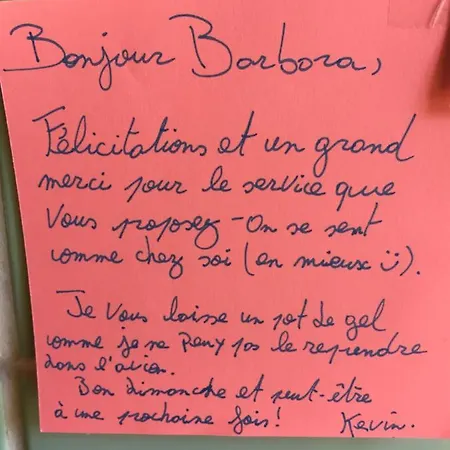 Bonjour Barbora,
Félicitations et un grand
merci pour le service que
vous proposez - On se sent
comme chez soi (en mieux ü).
Je vous laisse un pot de gel
comme je ne peux pas le reprendre
dans l'avion.
Bon dimanche et peut-être
à une prochaine fois! Kevin.